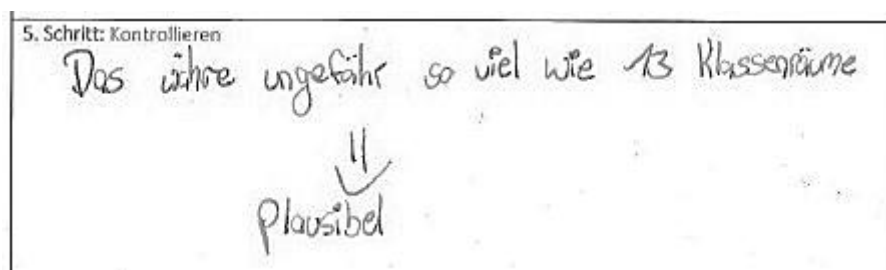 5. Schritt: Kontrollieren
Das währe ungefähr so viel wie 13 Klassenräume
⇓
plausibel